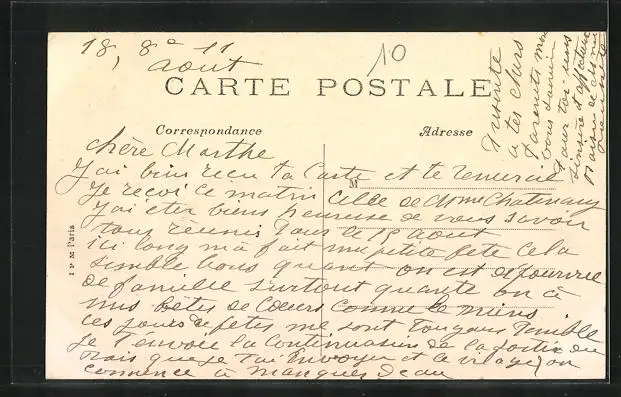 18, 8e 11
Aout
10
CARTE POSTALE
Correspondance
Adresse
M
I P M Paris
chère Marthe
J'ai bien recu ta Carte et te remercie
Je recoi ce matin celle de Mme Chatenay
J'ai eter biens heureuse de vous savoir
tous reunis pour le 15 Aout
ici long m'a fait une petite fete cela
semble bons quant on est depourvue
de famille surtout quante on à
nus bêtes de Coeurs comme le miens
ces jours de fetes me sont toujours penible
Je t'envoie la Continuation de la sortie du
mais que je t'ai envoyer et le village on
commence à manquer d'eau
Presente
a tes chers
Parents mon
bons souvenir
Pour toi mes
sincere et affectueux